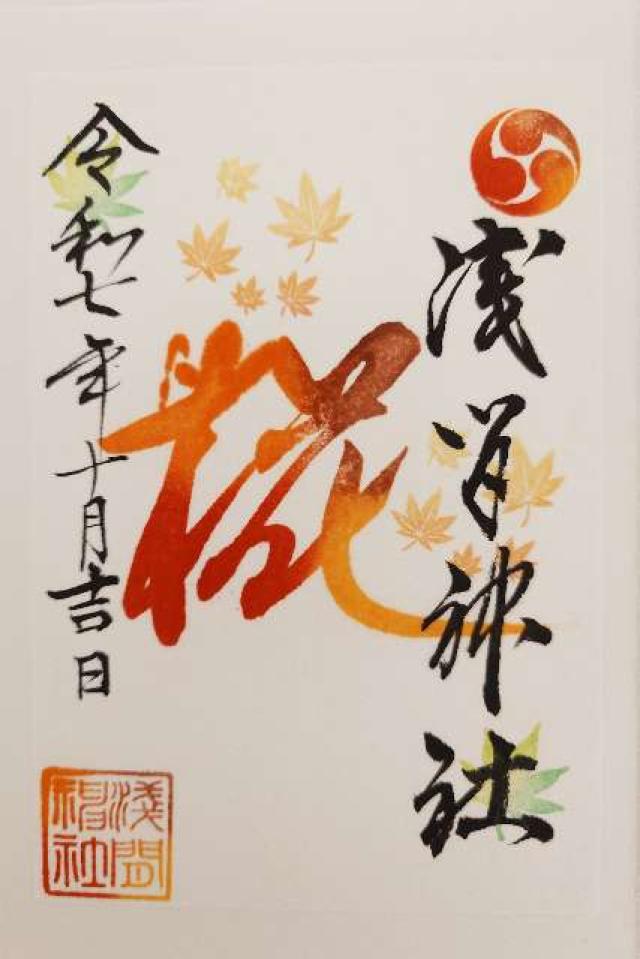 浅間神社
椛
令和七年十月吉日
淺間
神社